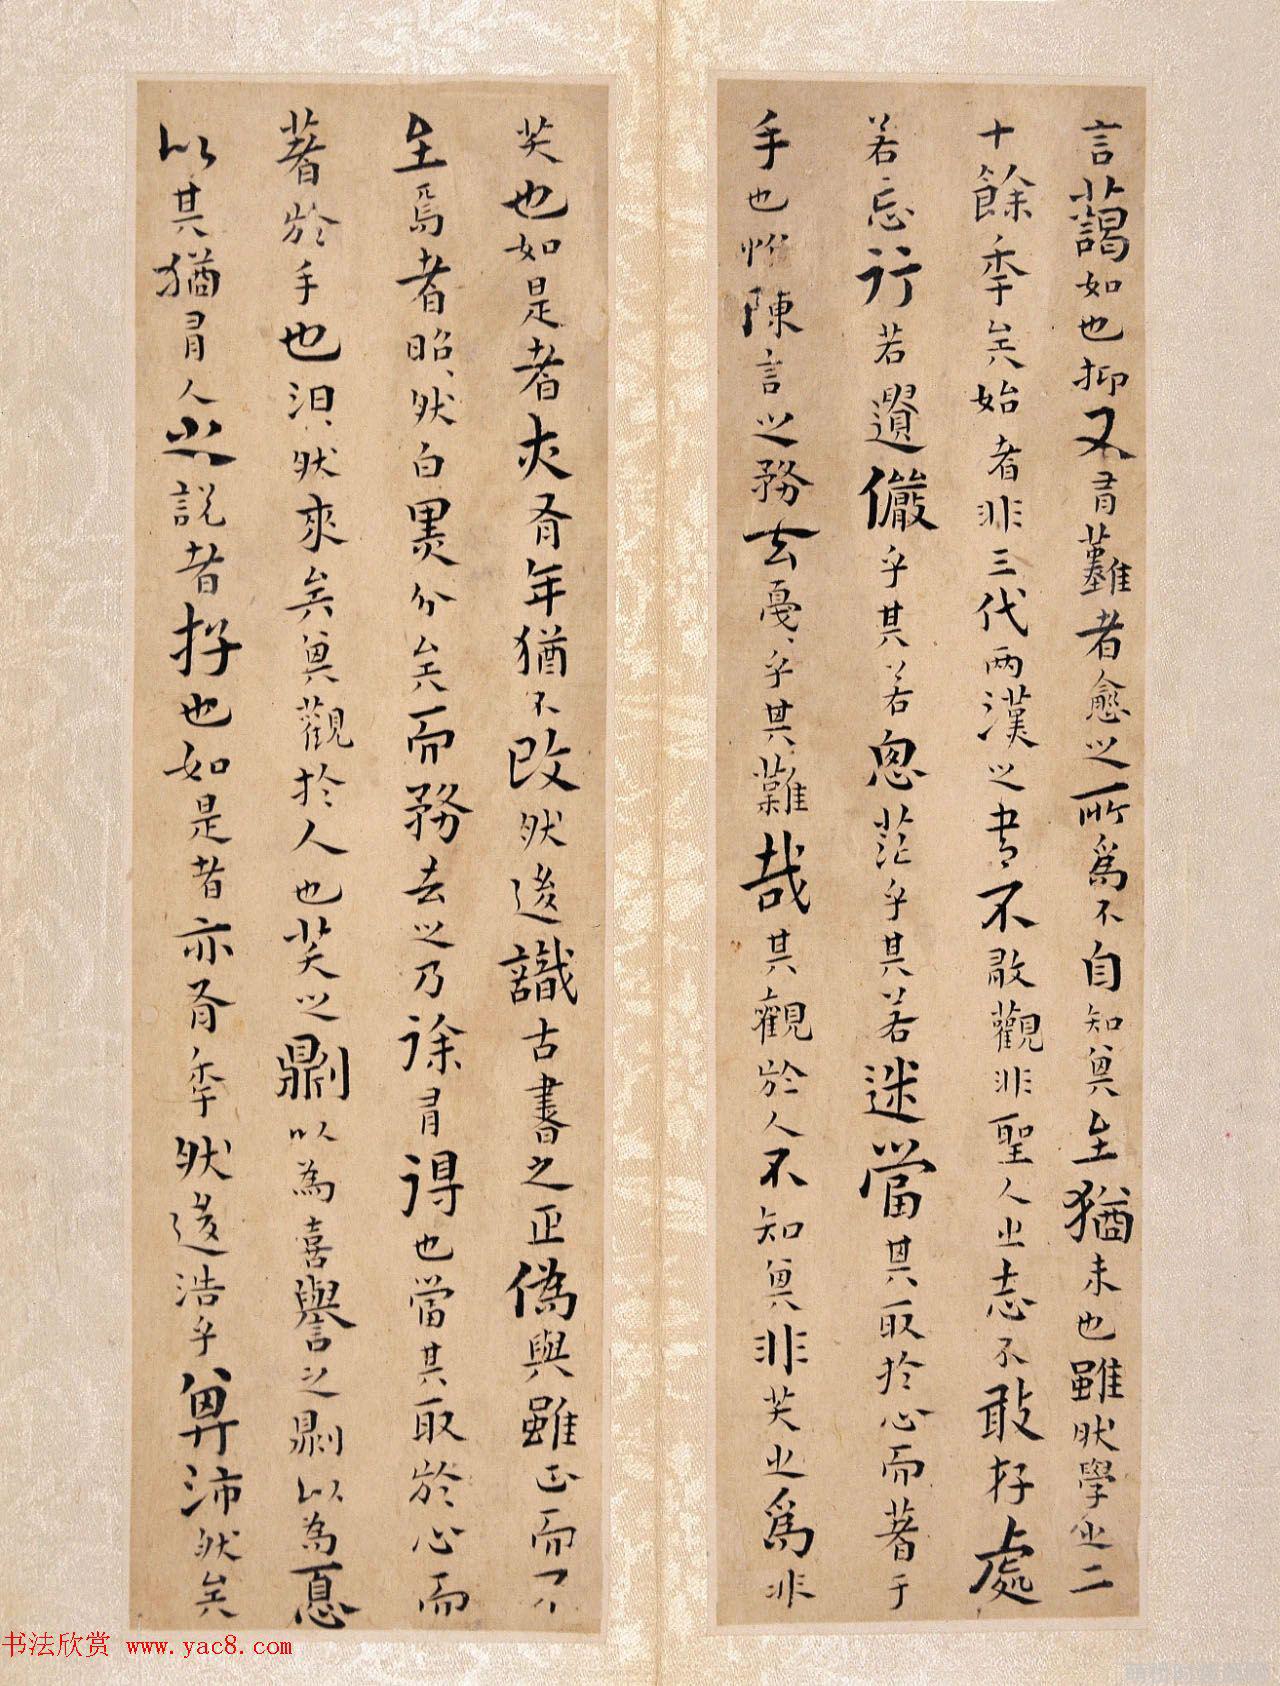 言藹如也抑又有難者愈之所爲不自知其至猶未也雖然學之二
十餘年矣始者非三代兩漢之書不敢觀非聖人之志不敢存處
若忘行若遺儼乎其若思茫乎其若迷當其取於心而著于
手也惟陳言之務去戛、乎其難哉其觀於人不知其非笑之爲非
笑也如是者亦有年猶不改然後識古書之正僞與雖正而不
至焉者昭、然白黑分矣而務去之乃徐有得也當其取於心而
著於手也汩、然來矣其觀於人也笑之則以為喜譽之則以為憂
以其猶有人之說者存也如是者亦有年然後浩乎其沛然矣
书法欣赏 www.yac8.com